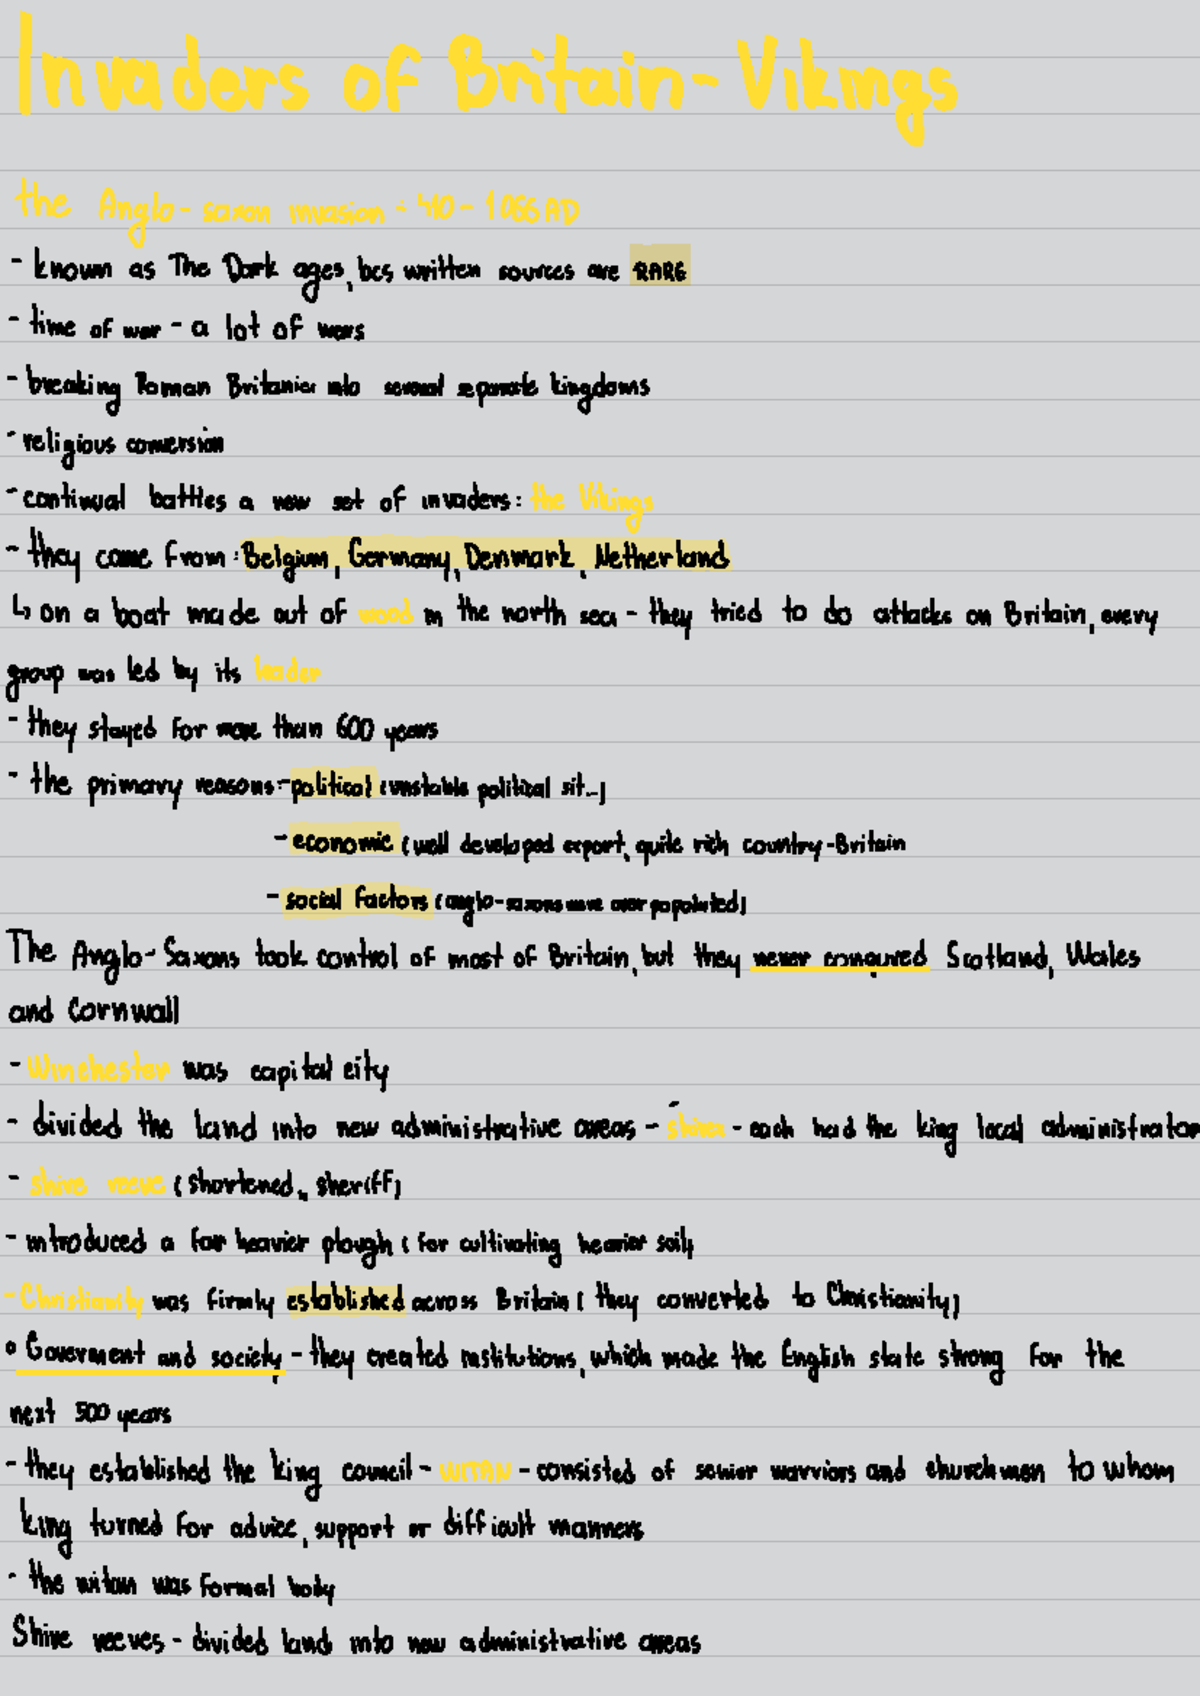 Invaders of Britain- Vikings
the Anglo-saxon invasion - 410 - 1066 AD
- known as The Dark ages, bcs written sources are RARE
- time of war - a lot of wars
- breaking Roman Britania into several separate kingdoms
- religious conversion
- continual battles a new set of invaders: the Vikings
- they came from: Belgium, Germany, Denmark, Netherland
↳ on a boat made out of wood in the north sea - they tried to do attacks on Britain, every
group was led by its leader
- they stayed for more than 600 years
- the primary reasons: - political (unstable political sit..)
- economic (well developed export, quite rich country-Britain
- social factors (anglo-saxons were overpopulated)
The Anglo-Saxons took control of most of Britain, but they never conqured Scotland, Wales
and Cornwall
- Winchester was capital city
- divided the land into new administrative areas - shires - each had the king local administrator
- shire reeve (shortened, sheriff)
- introduced a far heavier plough (for cultivating heavier soil)
- Christianity was firmly established across Britain (they converted to Christianity)
• Goverment and society - they created institutions, which made the English state strong for the
next 500 years
- they established the king council - WITAN - consisted of senior warriors and churchmen to whom
king turned for advice, support or difficult manners
- the witan was formal body
Shire reeves - divided land into new administrative areas